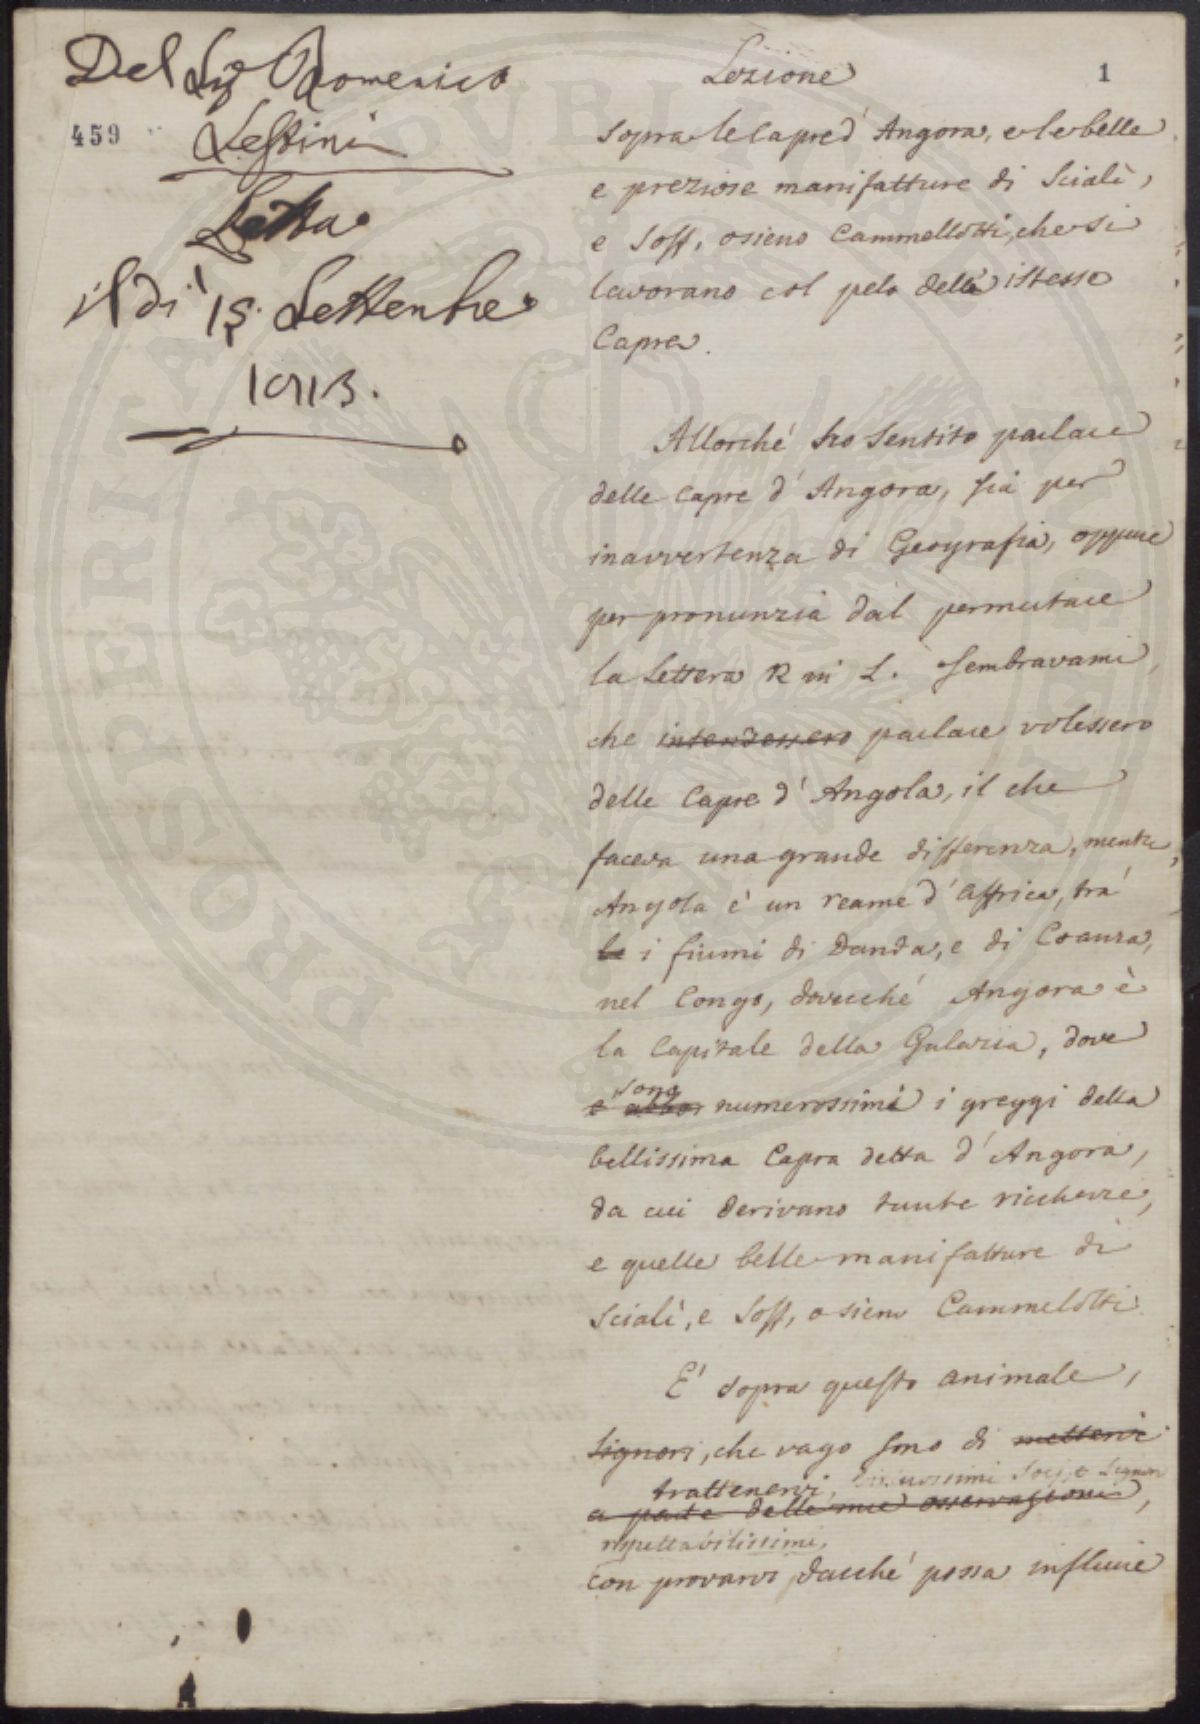 Del Sig. Domenico
459
Sestini
Letta
il dì 15. Settembre
1813.
1
Lezione
Sopra le Capre d'Angora, e le belle
e preziose manifatture di Scialì,
e Soff, osieno Cammellotti, che si
lavorano col pelo delle istesse
Capre.
Allorché ho sentito parlare
delle Capre d'Angora, sia per
inavvertenza di Geografia, oppure
per pronunzia dal permutare
la Lettera R in L. sembravami,
che intendessero parlare volessero
delle Capre d'Angola, il che
faceva una grande differenza, mentre,
Angola è un reame d'Affrica, trà
le i fiumi di Danda, e di Coanza,
nel Congo, dovecché Angora è
la Capitale della Galazia, dove
sono
è numerossimi i greggi della
bellissima Capra detta d'Angora,
da cui derivano tante ricchezze,
e quelle belle manifatture di
Scialì, e Soff, o sieno Cammelotti.
E' sopra questo animale,
Signori, che vago sono di mettervi
trattenervi, Soci, e Signori
a parte delle mie osservazioni,
rispettabilissimi,
con provarvi, dacché possa influire